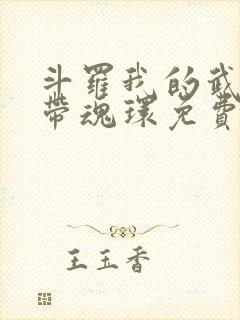 斗羅我的武
帶魂環免費
王玉香